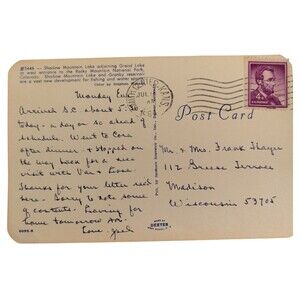 #1446 - Shadow Mountain Lake adjoining Grand Lake
at west entrance to the Rocky Mountain National Park,
Colorado. Shadow Mountain Lake and Granby reservoir
are a vast new development for fishing and water sports.
Monday Eve
Arrived S.C. about 5.30
today - a day or so ahead of
schedule. Went to
after dinner & stopped on
the way back for a nice
visit with Van & 
Thanks for your letter
Sorry to note some
of contents. Leaving for
home tomorrow
Love, Jack
KANS
JUL
AM
Post Card
Mr. & Mrs. Frank Thayer
112 Greese Terrace
Madison
Wisconsin 53705
MADE BY
DEXTER